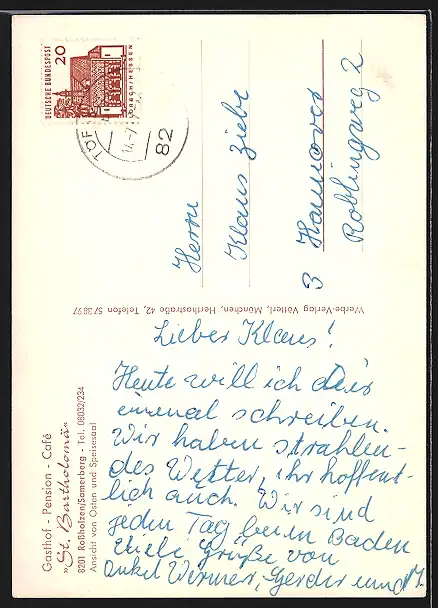 Lieber Klaus!
Heute will ich dir
einmal schreiben.
Wir haben strahlen-
des Wetter, ihr hoffent-
lich auch. Wir sind
jeden Tag beim Baden
Viele Grüße von
Onkel Werner, Gerda und
Herrn
Klaus Ziebe
3 Hannover
Roblingweg 2
DEUTSCHE BUNDESPOST
20
LORSCH/HESSEN
82
Werbe-Verlag Vötterl, München, Herthastraße 42, Telefon 573897
Gasthof - Pension - Café
"St. Bartholomä"
8201 Roßholzen/Samerberg - Tel. 08032/234
Ansicht von Osten und Speisesaal